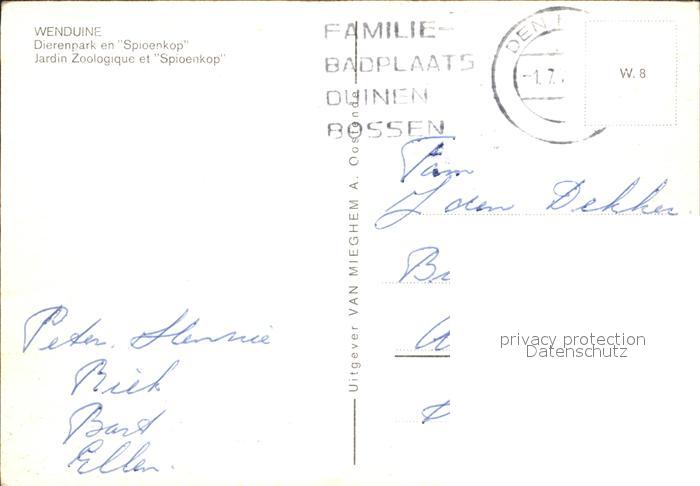 WENDUINE
Dierenpark en "Spioenkop"
Jardin Zoologique et "Spioenkop"
FAMILIE-
BADPLAATS
DUINEN
BOSSEN
DEN H
-1.7.
W. 8
Uitgever VAN MIEGHEM A. Oostende
Fam
J den Dekker.
privacy protection
Datenschutz
Peter. Hennie
Riek
Bart
Ellen.